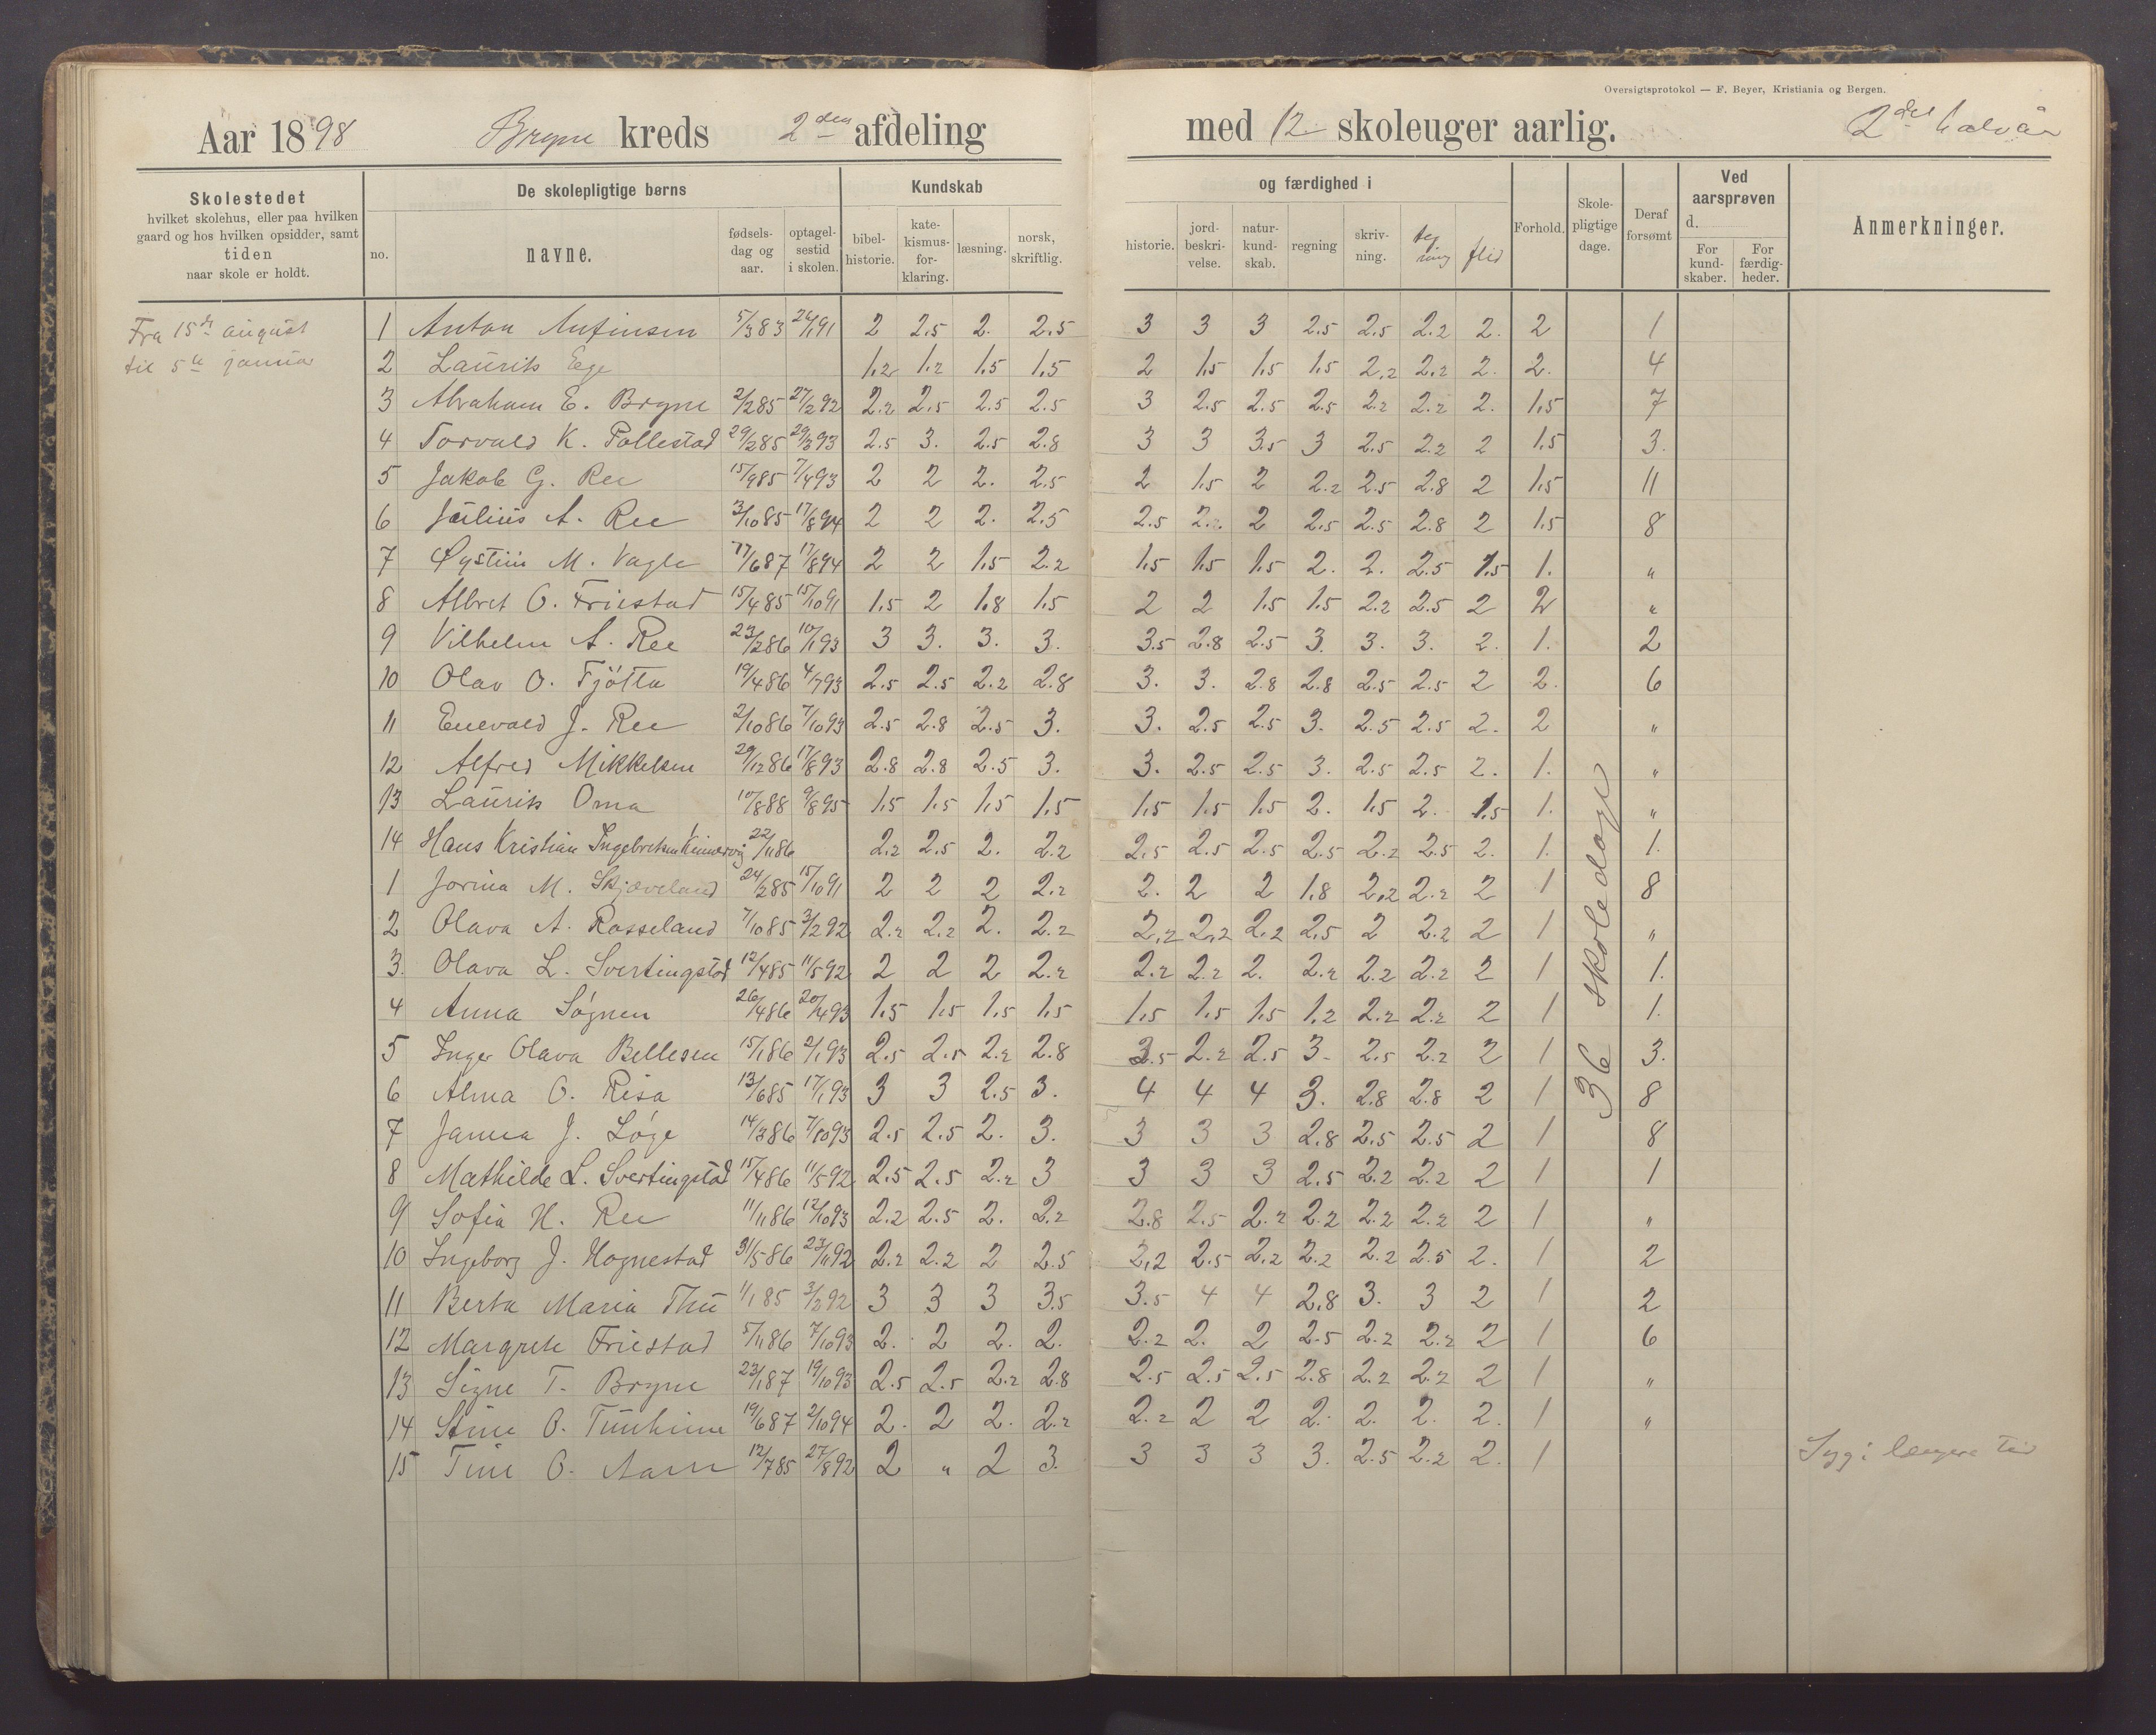 Oversigtsprotokol — F. Beyer, Kristiania og Bergen.
Aar 1898 Bryne kreds 2den afdeling med 12 skoleuger aarlig. 2det halvår
Skolestedet hvilket skolehus, eller paa hvilken gaard og hos hvilken opsidder, samt tiden naar skole er holdt.
De skolepligtige børns
no. navne. fødsels-dag og aar. optagel-sestid i skolen.
Kundskab og færdighed i
bibel-historie. kate-kismus-for-klaring. læsning. norsk, skriftlig. historie. jord-beskri-velse. natur-kund-skab. regning skriv-ning. teg ning flid
Forhold. Skole-pligtige dage. Deraf forsømt
Ved aarsprøven d. For kund-skaber. For færdig-heder.
Anmerkninger.
Fra 15de august
til 5te januar
36 skoledage
1 Anton Anfinsen 5/3 83 26/1 91 2 2.5 2. 2.5 3 3 3 2.5 2.5 2.2 2. 2 1
2 Laurits Ege 1.2 1.2 1.5 1.5 2 1.5 1.5 1.5 2.2 2.2 2. 2. 4
3 Abraham E. Bryne 2/2 85 27/2 92 2.2 2.5 2.5 2.5 3 2.5 2.5 2.5 2.2 2.2 2. 1.5 7
4 Torvald K. Pollestad 29/2 85 29/3 93 2.5 3. 2.5 2.8 3 3 3.5 3 2.5 2.2 2 1.5 3.
5 Jakob G. Ree 15/9 85 7/4 93 2 2 2. 2.5 2 1.5 2 2.2 2.5 2.8 2 1.5 11
6 Julius A. Ree 3/10 85 17/8 94 2 2 2. 2.5 2.5 2.2 2 2.5 2.5 2.8 2 1.5 8
7 Øystein M. Vagle 17/6 87 17/8 94 2 2 1.5 2.2 1.5 1.5 1.5 2. 2. 2.5 1.5 1. "
8 Albret O. Friestad 15/4 85 15/10 91 1.5 2 1.8 1.5 2 2 1.5 1.5 2.2 2.5 2 2 "
9 Vilhelm A. Ree 23/2 86 10/1 93 3 3. 3. 3. 3.5 2.8 2.5 3. 3. 3. 2. 1. 2
10 Olav O. Tjötta 19/4 86 4/7 93 2.5 2.5 2.2 2.8 3. 3. 2.8 2.8 2.5 2.5 2 2. 6
11 Enevald J. Ree 2/10 86 7/10 93 2.5 2.8 2.5 3. 3. 2.5 2.5 3. 2.5 2.5 2. 2 "
12 Alfred Mikkelsen 29/12 86 17/8 93 2.8 2.8 2.5 3. 3. 2.5 2.5 3. 2.5 2.5 2. 1. "
13 Laurits Oma 10/8 88 9/8 95 1.5 1.5 1.5 1.5 1.5 1.5 1.5 2. 1.5 2. 1.5 1. "
14 Hans Kristian Ingebretsen Kinnervig 22/11 86 2.2 2.5 2. 2.2 2.5 2.5 2.5 2.5 2.2 2.5 2. 1. 1.
1 Jorina M. Skjæveland 24/2 85 15/10 91 2 2 2 2.2 2. 2 2 1.8 2.2 2.2 2 1 8
2 Olava A. Rosseland 7/10 85 3/2 92 2.2 2.2 2. 2.2 2.2 2.2 2.2 2.5 2 2.2 2 1 "
3. Olava L. Svertingstad 12/4 85 11/5 92 2 2 2 2.2 2.2 2.2 2. 2.2 2.2 2.2 2 1 1.
4 Anna Sógnen 26/4 86 20/4 93 1.5 1.5 1.5 1.5 1.5 1.5 1.5 1.2 2.2 2.2 2 1 1.
5 Inger Olava Bellesen 15/1 86 2/1 93 2.5 2.5 2.2 2.8 3.5 2.2 2.5 3. 2.5 2.2 2 1 3.
6 Alma O. Risa 13/6 85 17/1 93 3 3 2.5 3. 4 4 4 3. 2.8 2.8 2 1 8
7 Janna J. Lóge 14/3 86 7/10 93 2.5 2.5 2. 3. 3 3 3 2.8 2.5 2.5 2 1 8
8 Mathilde L. Svertingstad 15/4 86 11/5 92 2.5 2.5 2.2 3 3 3 3 2.5 2.2 2.2 2 1 1
9 Sofia H. Ree 11/11 86 12/10 93 2.2 2.5 2. 2.2 2.8 2.5 2.2 2.2 2.2 2.2 2 1 "
10 Ingeborg J. Hognestad 31/5 86 23/11 92 2.2 2.2 2 2.5 2.2 2.5 2.2 2.2 2.2 2.5 2. 1 2
11 Berta Maria Thu 1/1 85 3/2 92 3 3 3 3.5 3.5 4 4 2.8 3. 3 2 1 2
12 Margrete Friestad 5/11 86 7/10 93 2. 2 2. 2. 2.2 2. 2 2.5 2.2 2.2 2 1 6
13 Signe T. Bryne 23/1 87 19/10 93 2.5 2.5 2.2 2.8 2.5 2.5 2.5 2.8 2.2 2.2 2 1 "
14 Stine O. Tunheim 19/6 87 2/10 94 2. 2 2. 2.2 2.2 2 2 2. 2. 2. 2. 1 "
15 Tine O. 12/7 85 27/8 92 2 " 2 3. 3 3 3 3. 2.5 2.2 2. 1 Syg i længere tid